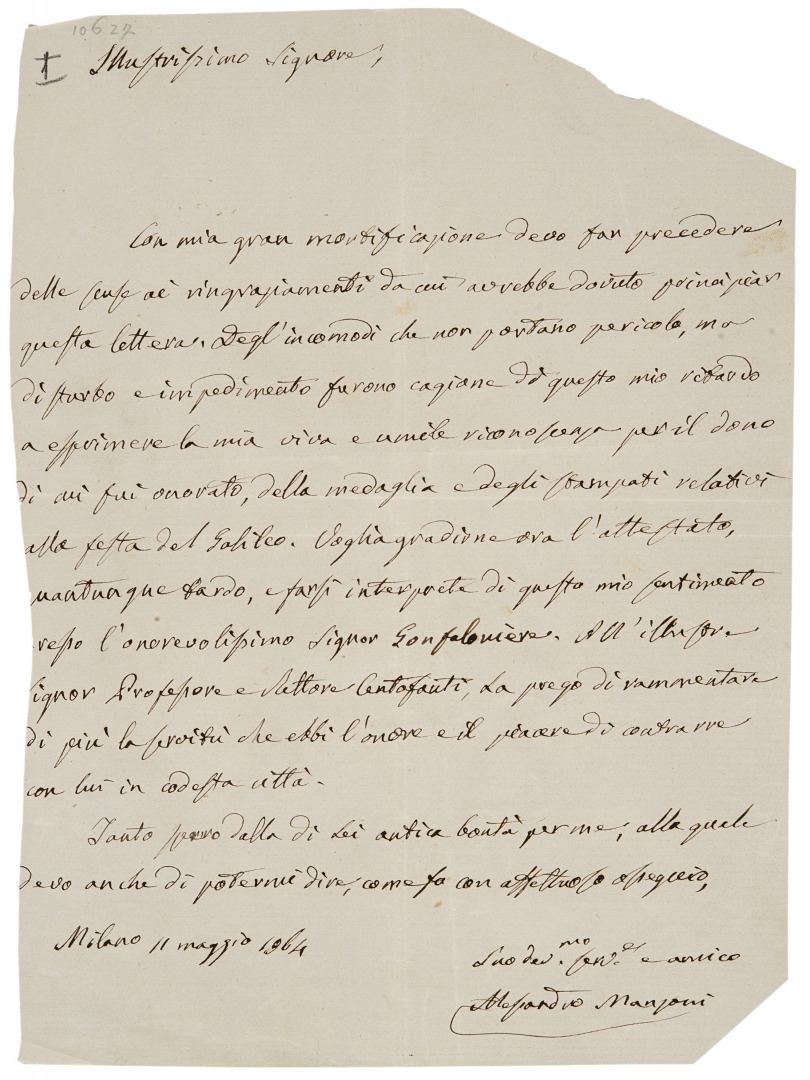 10627
Illustrissimo Signore,
Con mia gran mortificazione devo far precedere
delle scuse ai ringraziamenti da cui avrebbe dovuto principiar
questa lettera. Degl'incomodi che non portano pericolo, ma
disturbo e impedimento furono cagione di questo mio ritardo
a esprimere la mia viva e umile riconoscenza per il dono
di cui fui onorato, della medaglia e degli stampati relativi
alla festa del Galileo. Voglia gradirne ora l'attestato,
uantunque tardo, e farsi interprete di questo mio sentimento
resso l'onorevolissimo Signor Gonfaloniere. All'illustre
Signor Professore e Rettore Centofanti, La prego di rammentare
di più la servitù che ebbi l'onore e il piacere di contrarre
con lui in codesta città.
Tanto spero dalla di Lei antica bontà per me, alla quale
devo anche di potermi dire, come fo con affettuoso ossequio,
Milano 11 maggio 1864
Suo dev.mo serv.e e amico
Alessandro Manzoni